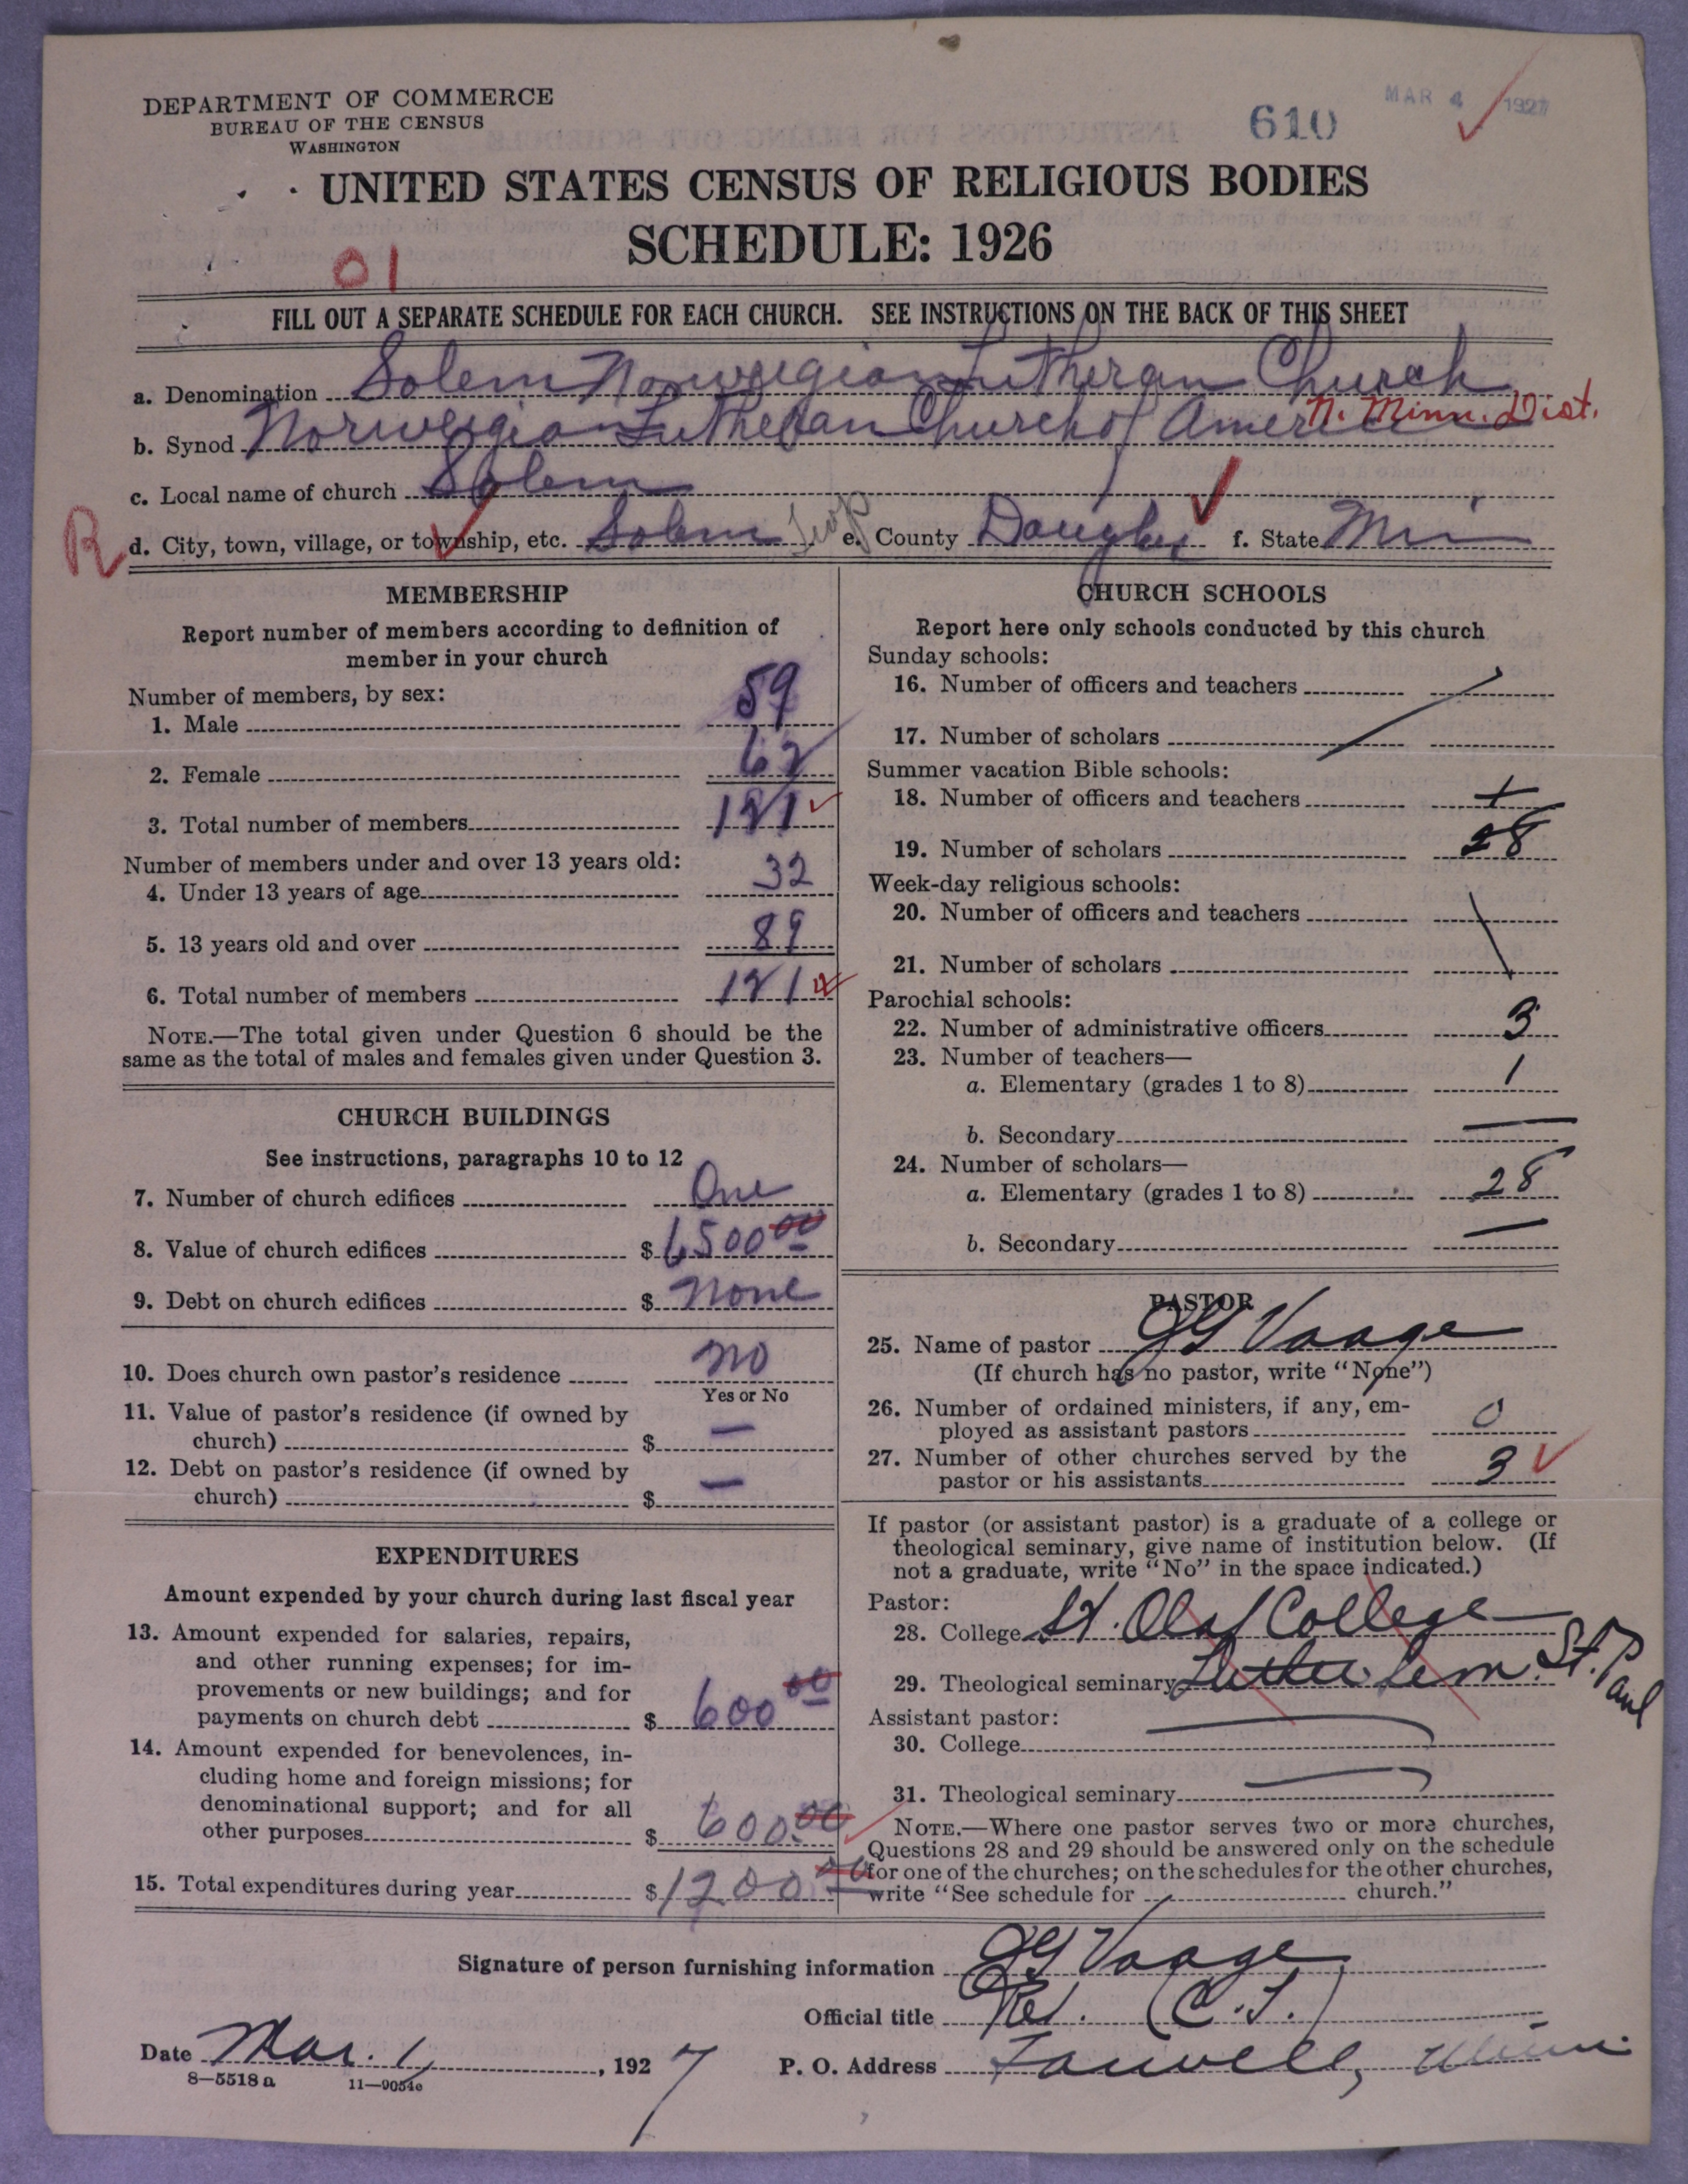 DEPARTMENT OF COMMERCE
BUREAU OF THE CENSUS
WASHINGTON
610
MAR 4 1927
UNITED STATES CENSUS OF RELIGIOUS BODIES
SCHEDULE: 1926
01
FILL OUT A SEPARATE SCHEDULE FOR EACH CHURCH. SEE INSTRUCTIONS ON THE BACK OF THIS SHEET
a. Denomination Solem Norwegian Lutheran Church
b. Synod Norwegian Lutheran Church of America N. Minn. Dist.
c. Local name of church Solem
R d. City, town, village, or township, etc. Solem Twp e. County Douglas f. State Min
MEMBERSHIP
Report number of members according to definition of
member in your church
Number of members, by sex:
1. Male 59
2. Female 62
3. Total number of members 121
Number of members under and over 13 years old:
4. Under 13 years of age 32
5. 13 years old and over 89
6. Total number of members 121
NOTE.—The total given under Question 6 should be the
same as the total of males and females given under Question 3.
CHURCH BUILDINGS
See instructions, paragraphs 10 to 12
7. Number of church edifices One
8. Value of church edifices $ 6500 00
9. Debt on church edifices $ None
10. Does church own pastor's residence No
Yes or No
11. Value of pastor's residence (if owned by
church) $ —
12. Debt on pastor's residence (if owned by
church) $ —
EXPENDITURES
Amount expended by your church during last fiscal year
13. Amount expended for salaries, repairs,
and other running expenses; for im-
provements or new buildings; and for
payments on church debt $ 600 00
14. Amount expended for benevolences, in-
cluding home and foreign missions; for
denominational support; and for all
other purposes $ 600.00
15. Total expenditures during year $ 1200 00
CHURCH SCHOOLS
Report here only schools conducted by this church
Sunday schools:
16. Number of officers and teachers
17. Number of scholars
Summer vacation Bible schools:
18. Number of officers and teachers
19. Number of scholars 28
Week-day religious schools:
20. Number of officers and teachers
21. Number of scholars
Parochial schools:
22. Number of administrative officers 3
23. Number of teachers—
a. Elementary (grades 1 to 8) 1
b. Secondary —
24. Number of scholars—
a. Elementary (grades 1 to 8) 28
b. Secondary —
PASTOR
25. Name of pastor JG Vaage
(If church has no pastor, write "None")
26. Number of ordained ministers, if any, em-
ployed as assistant pastors 0
27. Number of other churches served by the
pastor or his assistants 3
If pastor (or assistant pastor) is a graduate of a college or
theological seminary, give name of institution below. (If
not a graduate, write "No" in the space indicated.)
Pastor:
28. College St. Olaf College
29. Theological seminary Luther Sem. St. Paul
Assistant pastor:
30. College
31. Theological seminary
NOTE.—Where one pastor serves two or more churches,
Questions 28 and 29 should be answered only on the schedule
for one of the churches; on the schedules for the other churches,
write "See schedule for church."
Signature of person furnishing information JG Vaage
Official title (C.T.)
Date Mar. 1, 1927 P. O. Address Farwell, Minn
8—5518 a 11—9054c